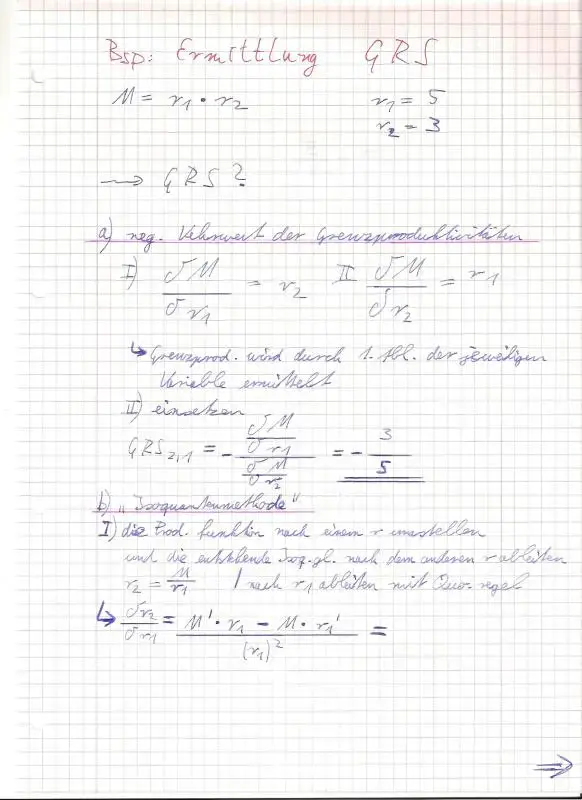 Bsp: Ermittlung GRS
M = r₁ • r₂ r₁ = 5
r₂ = 3
→ GRS?
a) neg. Kehrwert der Grenzproduktivitäten
I) δM/δr₁ = r₂ II δM/δr₂ = r₁
↳ Grenzprod. wird durch 1. Abl. der jeweiligen
Variable ermittelt
II) einsetzen
GRS₂,₁ = - (δM/δr₁)/(δM/δr₂) = - 3/5
b) „Isoquantenmethode"
I) die Prod. funktion nach einem r umstellen
und die entstehende Isoq.gl. nach dem anderen r ableiten
r₂ = M/r₁ / nach r₁ ableiten mit Quo. regel
↳ δr₂/δr₁ = (M' • r₁ - M • r₁')/(r₁)² =
⇒